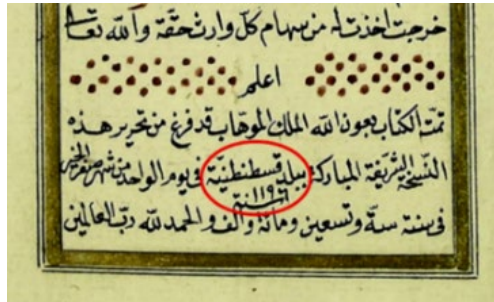 خرجت اخذت له من سهام كل وارث حقه والله تعا
اعلم
تمت الكتاب بعون الله الملك الموهاب قد فرغ من تحرير هذه
النسخة الشريفة المباركة ببلد قسطنطنية في يوم الواحد من شهر صفر الخير
سنة ١١٩٦
في سنة ستة وتسعين ومائة والف و الحمد لله رب العالمين